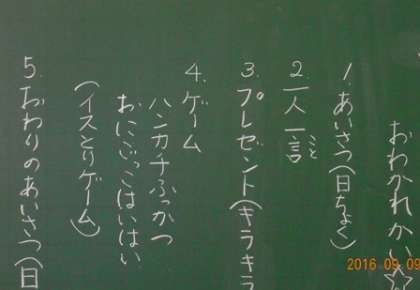 おわかれかい☆
1. あいさつ(日ちょく)
2. 一人一言
こと
3. プレゼント(キラキラ
4. ゲーム
ハンカチふっかつ
おにごっこはいはい
(イスとりゲーム)
5. おわりのあいさつ(日
2016.09.09